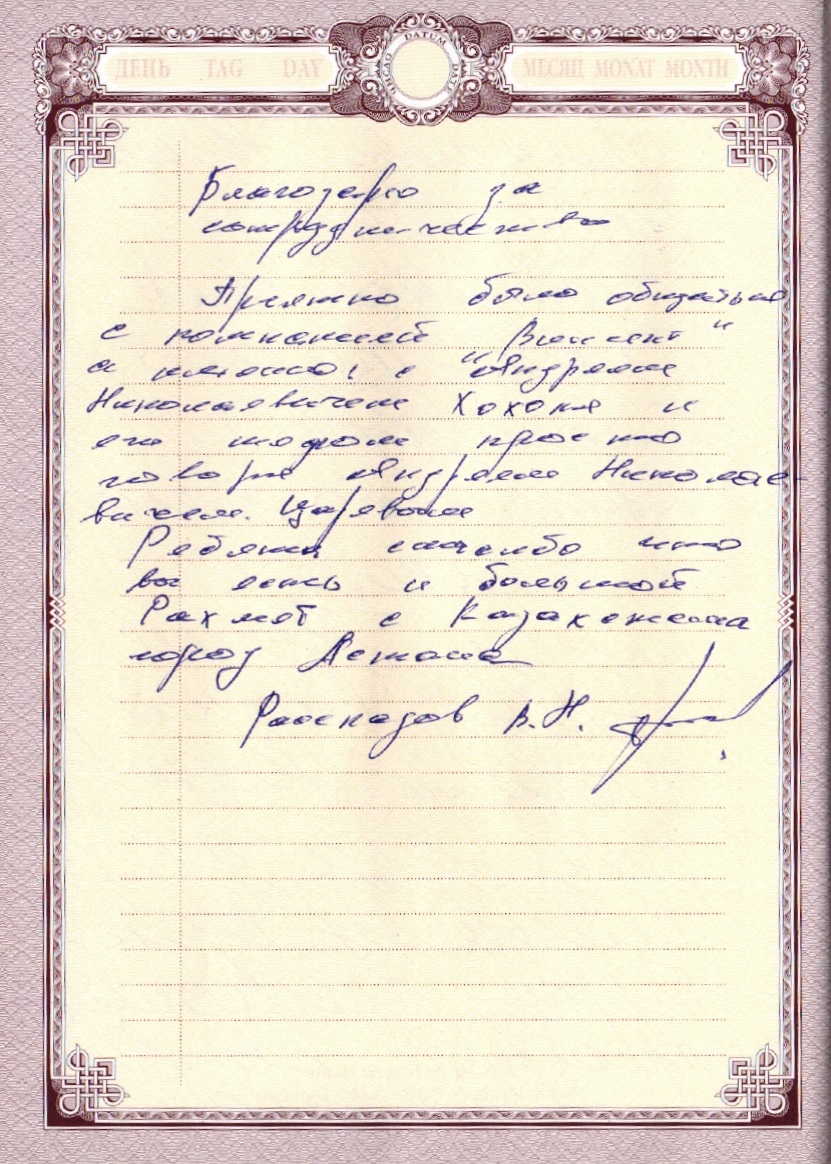 ДЕНЬ TAG DAY DATUM МЕСЯЦ MONAT MONTH
Благодарю за
сотрудничество
Приятно было общаться
с компанией "Винсент"
а именно с "Андреем
Николаевичем Хохоня и
его шефом просто
говоря Андреем Николае-
вичем. Царевым
Ребята спасибо что
вы есть и большой
Рахмет с Казахстана
город Астана
Распадов В.Н.